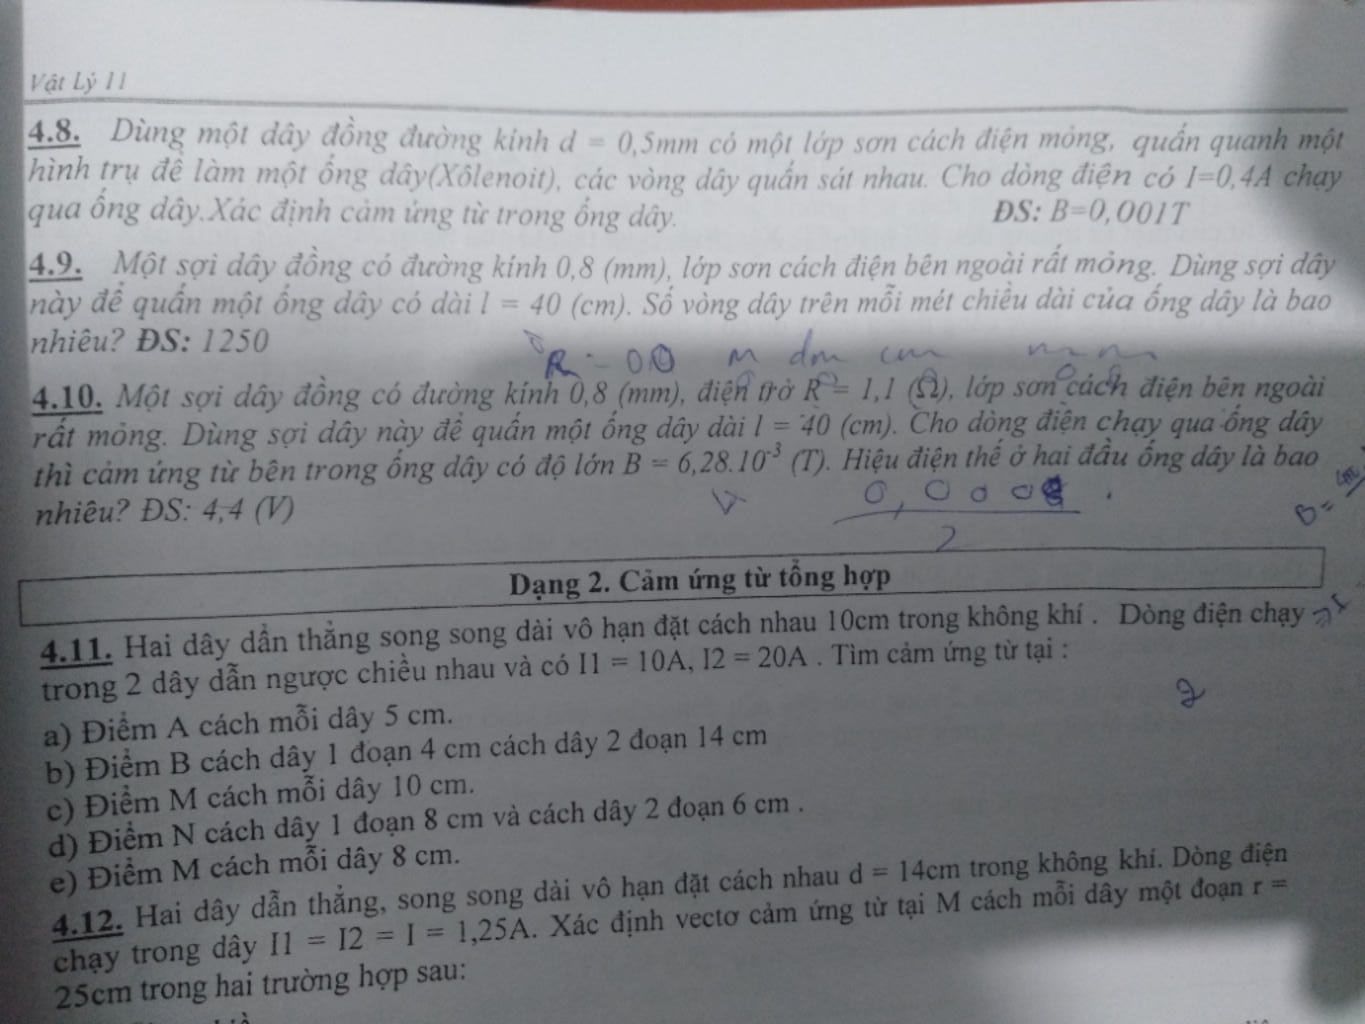 Vật Lý 11
4.8. Dùng một dây đồng đường kính d = 0,5mm có một lớp sơn cách điện mỏng, quấn quanh một
hình trụ để làm một ống dây(Xôlenoit), các vòng dây quấn sát nhau. Cho dòng điện có I=0,4A chạy
qua ống dây.Xác định cảm ứng từ trong ống dây. ĐS: B=0,001T
4.9. Một sợi dây đồng có đường kính 0,8 (mm), lớp sơn cách điện bên ngoài rất mỏng. Dùng sợi dây
này để quấn một ống dây có dài l = 40 (cm). Số vòng dây trên mỗi mét chiều dài của ống dây là bao
nhiêu? ĐS: 1250
m dm cm
4.10. Một sợi dây đồng có đường kính 0,8 (mm), điện trở R = 1,1 (Ω), lớp sơn cách điện bên ngoài
rất mỏng. Dùng sợi dây này để quấn một ống dây dài l = 40 (cm). Cho dòng điện chạy qua ống dây
thì cảm ứng từ bên trong ống dây có độ lớn B = 6,28.10⁻³ (T). Hiệu điện thế ở hai đầu ống dây là bao
nhiêu? ĐS: 4,4 (V)
2
B =
Dạng 2. Cảm ứng từ tổng hợp
4.11. Hai dây dẫn thẳng song song dài vô hạn đặt cách nhau 10cm trong không khí . Dòng điện chạy
trong 2 dây dẫn ngược chiều nhau và có I1 = 10A, I2 = 20A . Tìm cảm ứng từ tại :
a) Điểm A cách mỗi dây 5 cm.
b) Điểm B cách dây 1 đoạn 4 cm cách dây 2 đoạn 14 cm
c) Điểm M cách mỗi dây 10 cm.
d) Điểm N cách dây 1 đoạn 8 cm và cách dây 2 đoạn 6 cm .
e) Điểm M cách mỗi dây 8 cm.
4.12. Hai dây dẫn thẳng, song song dài vô hạn đặt cách nhau d = 14cm trong không khí. Dòng điện
chạy trong dây I1 = I2 = I = 1,25A. Xác định vectơ cảm ứng từ tại M cách mỗi dây một đoạn r =
25cm trong hai trường hợp sau: